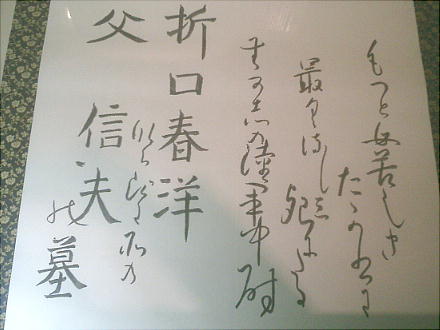 もつとも苦しき
たゝかひに
最くるしみ
死にたる
むかしの陸軍中尉
折口春洋
ならびにその
父 信夫
の墓